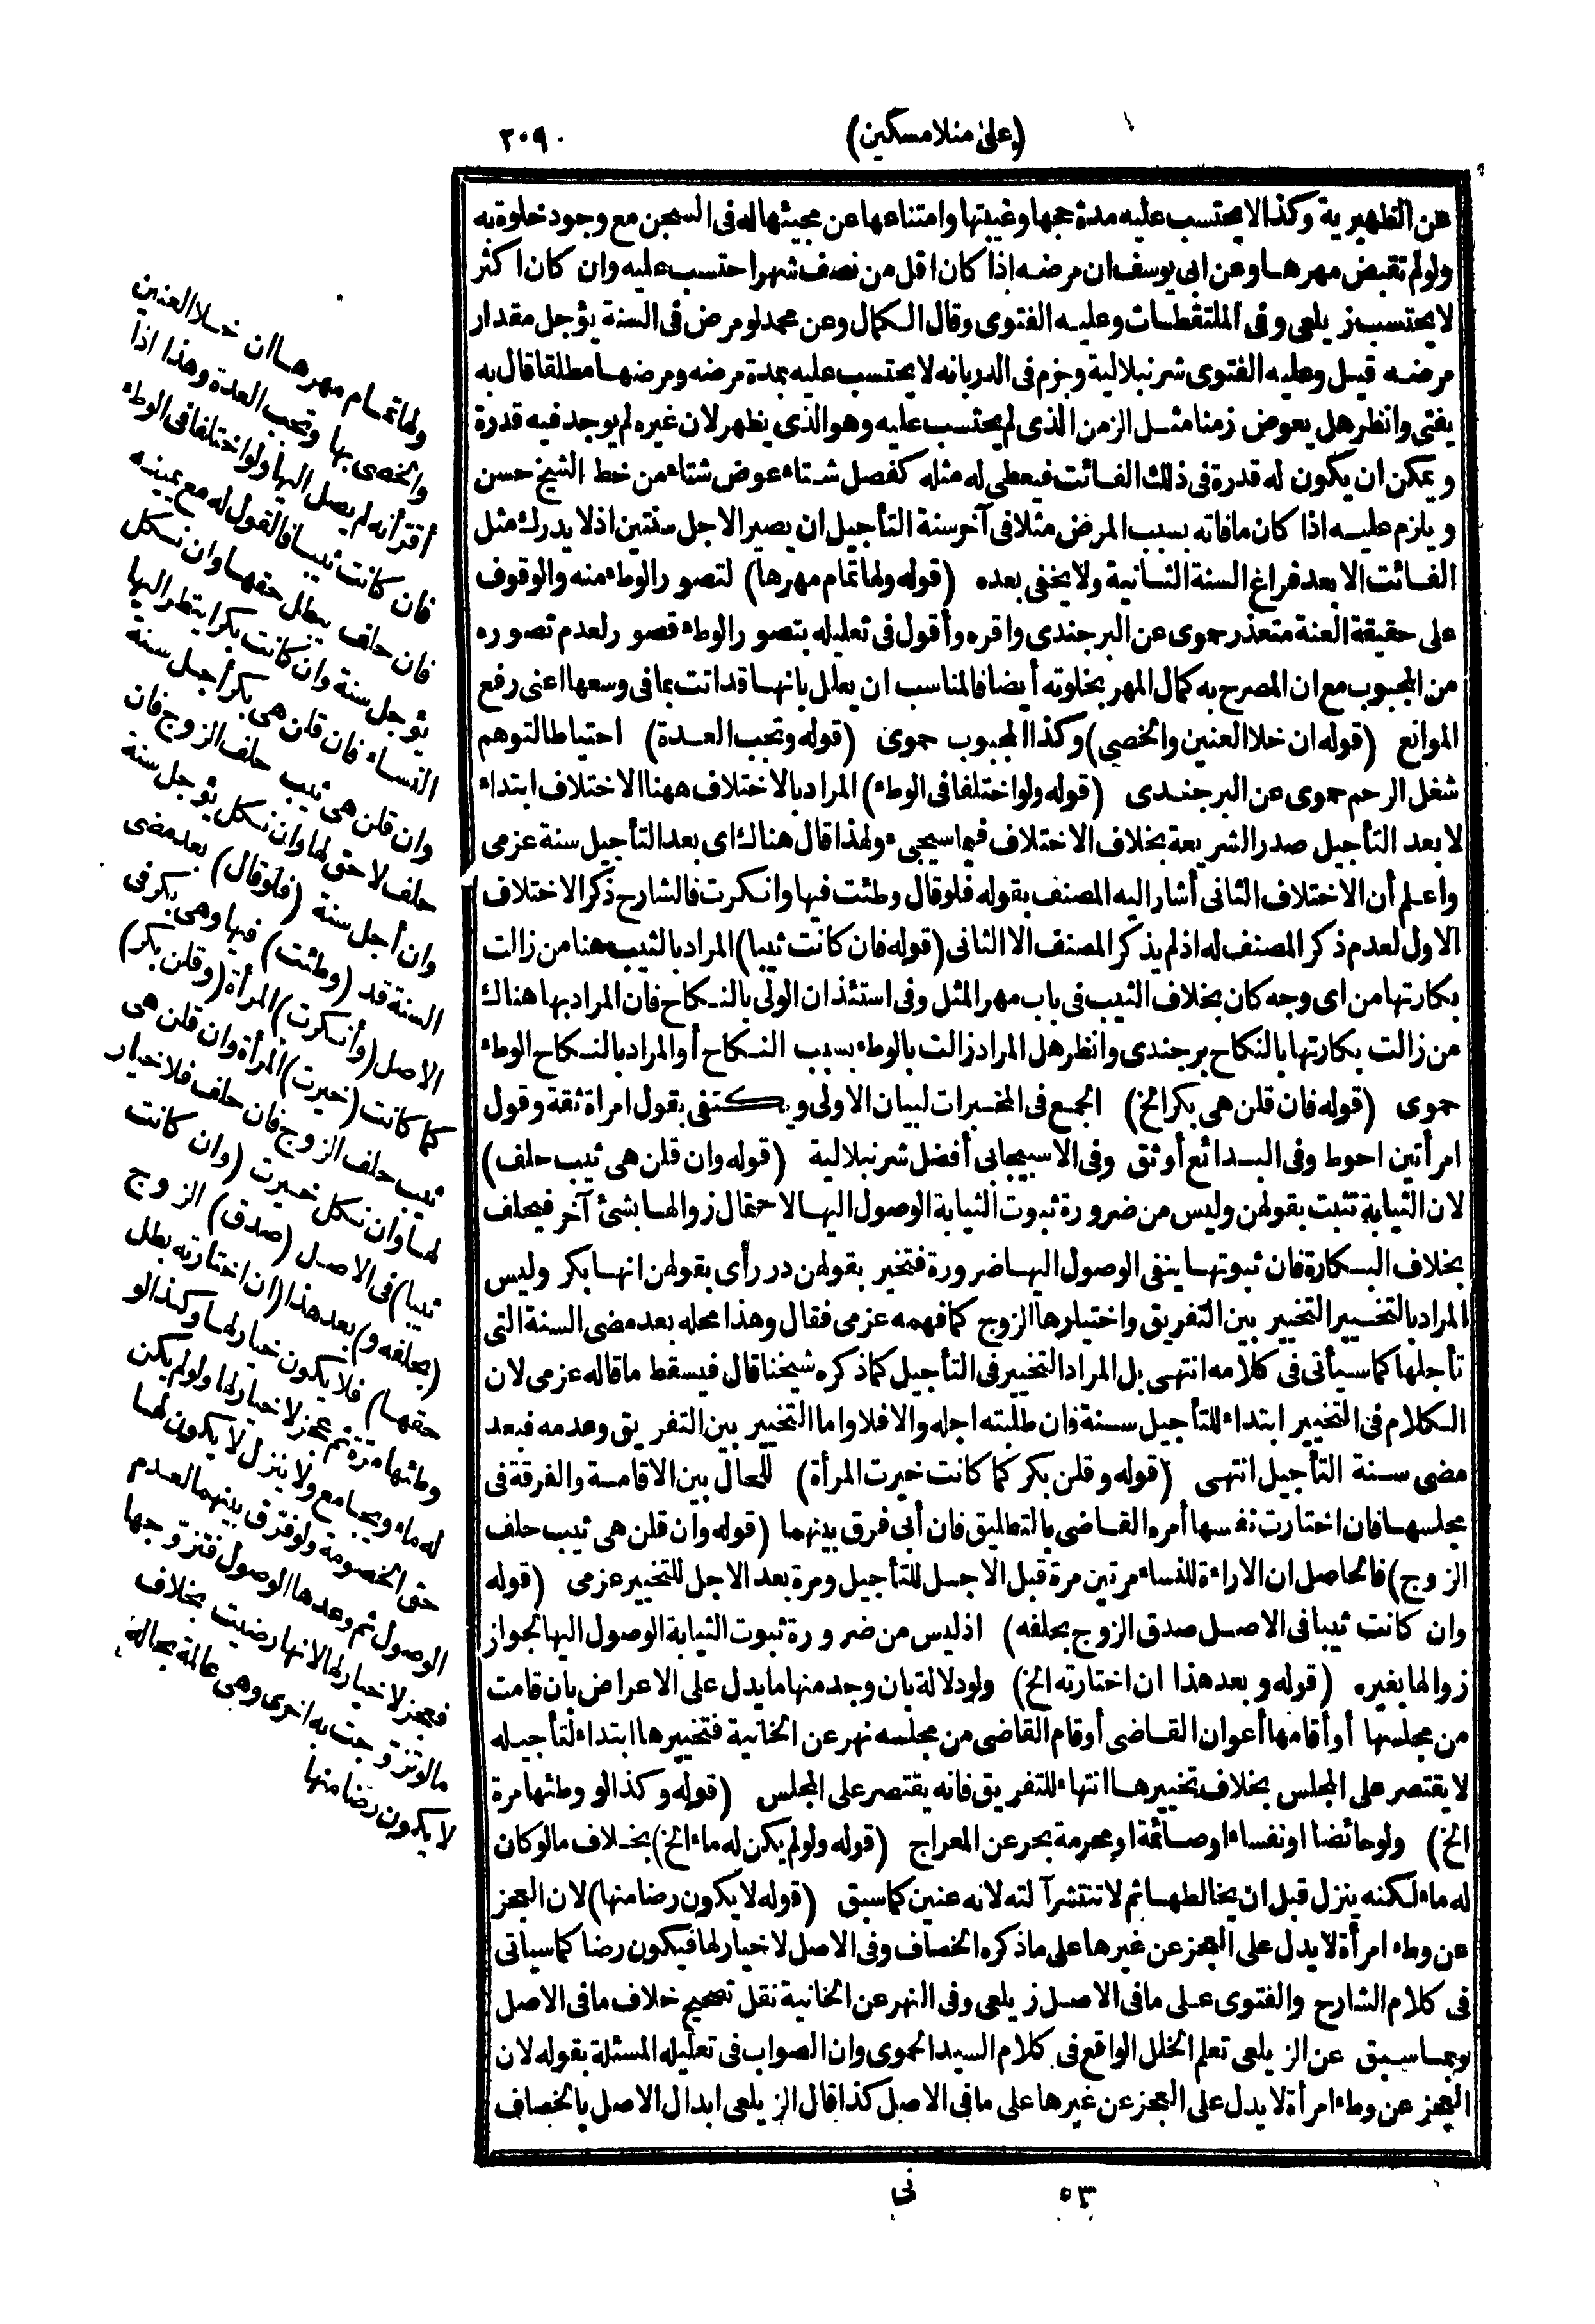 (على منلا مسكين)
٢٠٩
عن الظهيرية وكذا لا يحتسب عليه مدة حجها وغيبتها وامتناعها عن مجيئها له في السجن مع وجود خلوة به
ولو لم تقبض مهرها وعن ابى يوسف ان مرضه اذا كان اقل من نصف شهر احتسب عليه وان كان اكثر
لا يحتسب زيلعى وفى الملتقطات وعليه الفتوى وقال الكمال وعن محمد لو مرض فى السنة يؤجل مقدار
مرضه قيل وعليه الفتوى شرنبلالية وجزم فى الدر بانه لا يحتسب عليه بمدة مرضه ومرضها مطلقا قال به
يفتى وانظر هل يعوض زمنا مثل الزمن الذى لم يحتسب عليه وهو الذى يظهر لان غيره لم يوجد فيه قدرة
ويمكن ان يكون له قدرة فى ذلك الفائت فيعطى له مثله كفصل شتاء عوض شتاء من خط الشيخ حسن
ويلزم عليه اذا كان ما فاته بسبب المرض مثلا فى آخر سنة التأجيل ان يصير الاجل سنتين اذ لا يدرك مثل
الفائت الا بعد فراغ السنة الثانية ولا يخفى بعده (قوله ولها تمام مهرها) لتصور الوطء منه والوقوف
على حقيقة العنة متعذر حموى عن البرجندى واقره وأقول فى تعليله بتصور الوطء قصور لعدم تصوره
من المجبوب مع ان المصرح به كمال المهر بخلوته أيضا فالمناسب ان يعلل بانها قد اتت بما فى وسعها اعنى رفع
الموانع (قوله ان خلا العنين والخصي) وكذا المجبوب حموى (قوله وتجب العدة) احتياطا لتوهم
شغل الرحم حموى عن البرجندى (قوله ولو اختلفا فى الوطء) المراد بالاختلاف ههنا الاختلاف ابتداء
لا بعد التأجيل صدر الشريعة بخلاف الاختلاف فيما سيجىء ولهذا قال هناك اى بعد التأجيل سنة عزمى
واعلم أن الاختلاف الثانى أشار اليه المصنف بقوله فلو قال وطئت فيها وانكرت فالشارح ذكر الاختلاف
الاول لعدم ذكر المصنف له اذ لم يذكر المصنف الا الثانى (قوله فان كانت ثيبا) المراد بالثيب هنا من زالت
بكارتها من اى وجه كان بخلاف الثيب فى باب مهر المثل وفى استئذان الولى بالنكاح فان المراد بها هناك
من زالت بكارتها بالنكاح برجندى وانظر هل المراد زالت بالوطء بسبب النكاح أو المراد بالنكاح الوطء
حموى (قوله فان قلن هى بكر الخ) الجمع فى المخبرات لبيان الاولى ويكتفى بقول امراة ثقة وقول
امرأتين احوط وفى البدائع أوثق وفى الاسبيجابى أفضل شرنبلالية (قوله وان قلن هى ثيب حلف)
لان الثيابة تثبت بقولهن وليس من ضرورة ثبوت الثيابة الوصول اليها لاحتمال زوالها بشئ آخر فيحلف
بخلاف البكارة فان ثبوتها ينفى الوصول اليها ضرورة فتخير بقولهن درر أى بقولهن انها بكر وليس
المراد بالتخيير التخيير بين التفريق واختيارها الزوج كما فهمه عزمى فقال وهذا محله بعد مضى السنة التى
تأجلها كما سيأتى فى كلامه انتهى بل المراد التخيير فى التأجيل كما ذكره شيخنا قال فيسقط ما قاله عزمى لان
الكلام فى التخيير ابتداء للتأجيل سنة فان طلبته اجله والا فلا واما التخيير بين التفريق وعدمه فبعد
مضى سنة التأجيل انتهى (قوله وقلن بكر كما كانت خيرت المرأة) للحال بين الاقامة والفرقة فى
مجلسها فان اختارت نفسها أمره القاضى بالتطليق فان أبى فرق بينهما (قوله وان قلن هى ثيب حلف
الزوج) فالحاصل ان الاراءة للنساء مرتين مرة قبل الاجل للتأجيل ومرة بعد الاجل للتخيير عزمى (قوله
وان كانت ثيبا فى الاصل صدق الزوج بحلفه) اذ ليس من ضرورة ثبوت الثيابة الوصول اليها لجواز
زوالها بغيره (قوله وبعد هذا ان اختارته الخ) ولو دلالة بان وجد منها ما يدل على الاعراض بان قامت
من مجلسها أو أقامها أعوان القاضى أو قام القاضى من مجلسه نهر عن الخانية فتخييرها ابتداء لتأجيله
لا يقتصر على المجلس بخلاف تخييرها انتهاء للتفريق فانه يقتصر على المجلس (قوله وكذا لو وطئها مرة
الخ) ولو حائضا او نفساء او صائمة او محرمة بحر عن المعراج (قوله ولو لم يكن له ماء الخ) بخلاف ما لو كان
له ماء لكنه ينزل قبل ان يخالطها ثم لا تنتشر آلته لانه عنين كما سبق (قوله لا يكون رضا منها) لان العجز
عن وطء امرأة لا يدل على العجز عن غيرها على ما ذكره الخصاف وفى الاصل لا خيار لها فيكون رضا كما سيأتى
فى كلام الشارح والفتوى على ما فى الاصل زيلعى وفى النهر عن الخانية نقل تصحيح خلاف ما فى الاصل
وبما سبق عن الزيلعى تعلم الخلل الواقع فى كلام السيد الحموى وان الصواب فى تعليله المسئلة بقوله لان
العجز عن وطء امرأة لا يدل على العجز عن غيرها على ما فى الاصل كذا قال الزيلعى ابدال الاصل بالخصاف
ولها تمام مهرها ان خلا العنين
والخصى بها وتجب العدة وهذا اذا
أقرّ أنه لم يصل اليها ولو اختلفا فى الوطء
فان كانت ثيبا فالقول له مع يمينه
فان حلف يبطل حقها وان نكل
يؤجل سنة وان كانت بكرا ينظر اليها
النساء فان قلن هى بكر أجل سنة
وان قلن هى ثيب حلف الزوج فان
حلف لا حق لها وان نكل يؤجل سنة
وان أجل سنة (فلو قال) بعد مضى
السنة قد (وطئت) فيها وهى بكر فى
الاصل (وأنكرت) المرأة (وقلن بكر)
كما كانت (خيرت) المرأة وان قلن هى
ثيب حلف الزوج فان حلف فلا خيار
لها وان نكل خيرت (وان كانت
ثيبا) فى الاصل (صدق) الزوج
(بحلفه و) بعد هذا (ان اختارته بطل
حقها) فلا يكون خيار لها وكذا لو
وطئها مرّة ثم عجز لا خيار لها ولو لم يكن
له ماء ويجامع ولا ينزل لا يكون لها
حق الخصومة ولو فرّق بينهما لعدم
الوصول ثم وعدها الوصول فتزوّجها
فعجز لا خيار لها لانها رضيت بخلاف
ما لو تزوّجت به اخرى وهى عالمة بحاله
لا يكون رضا منها
٥٣
نى